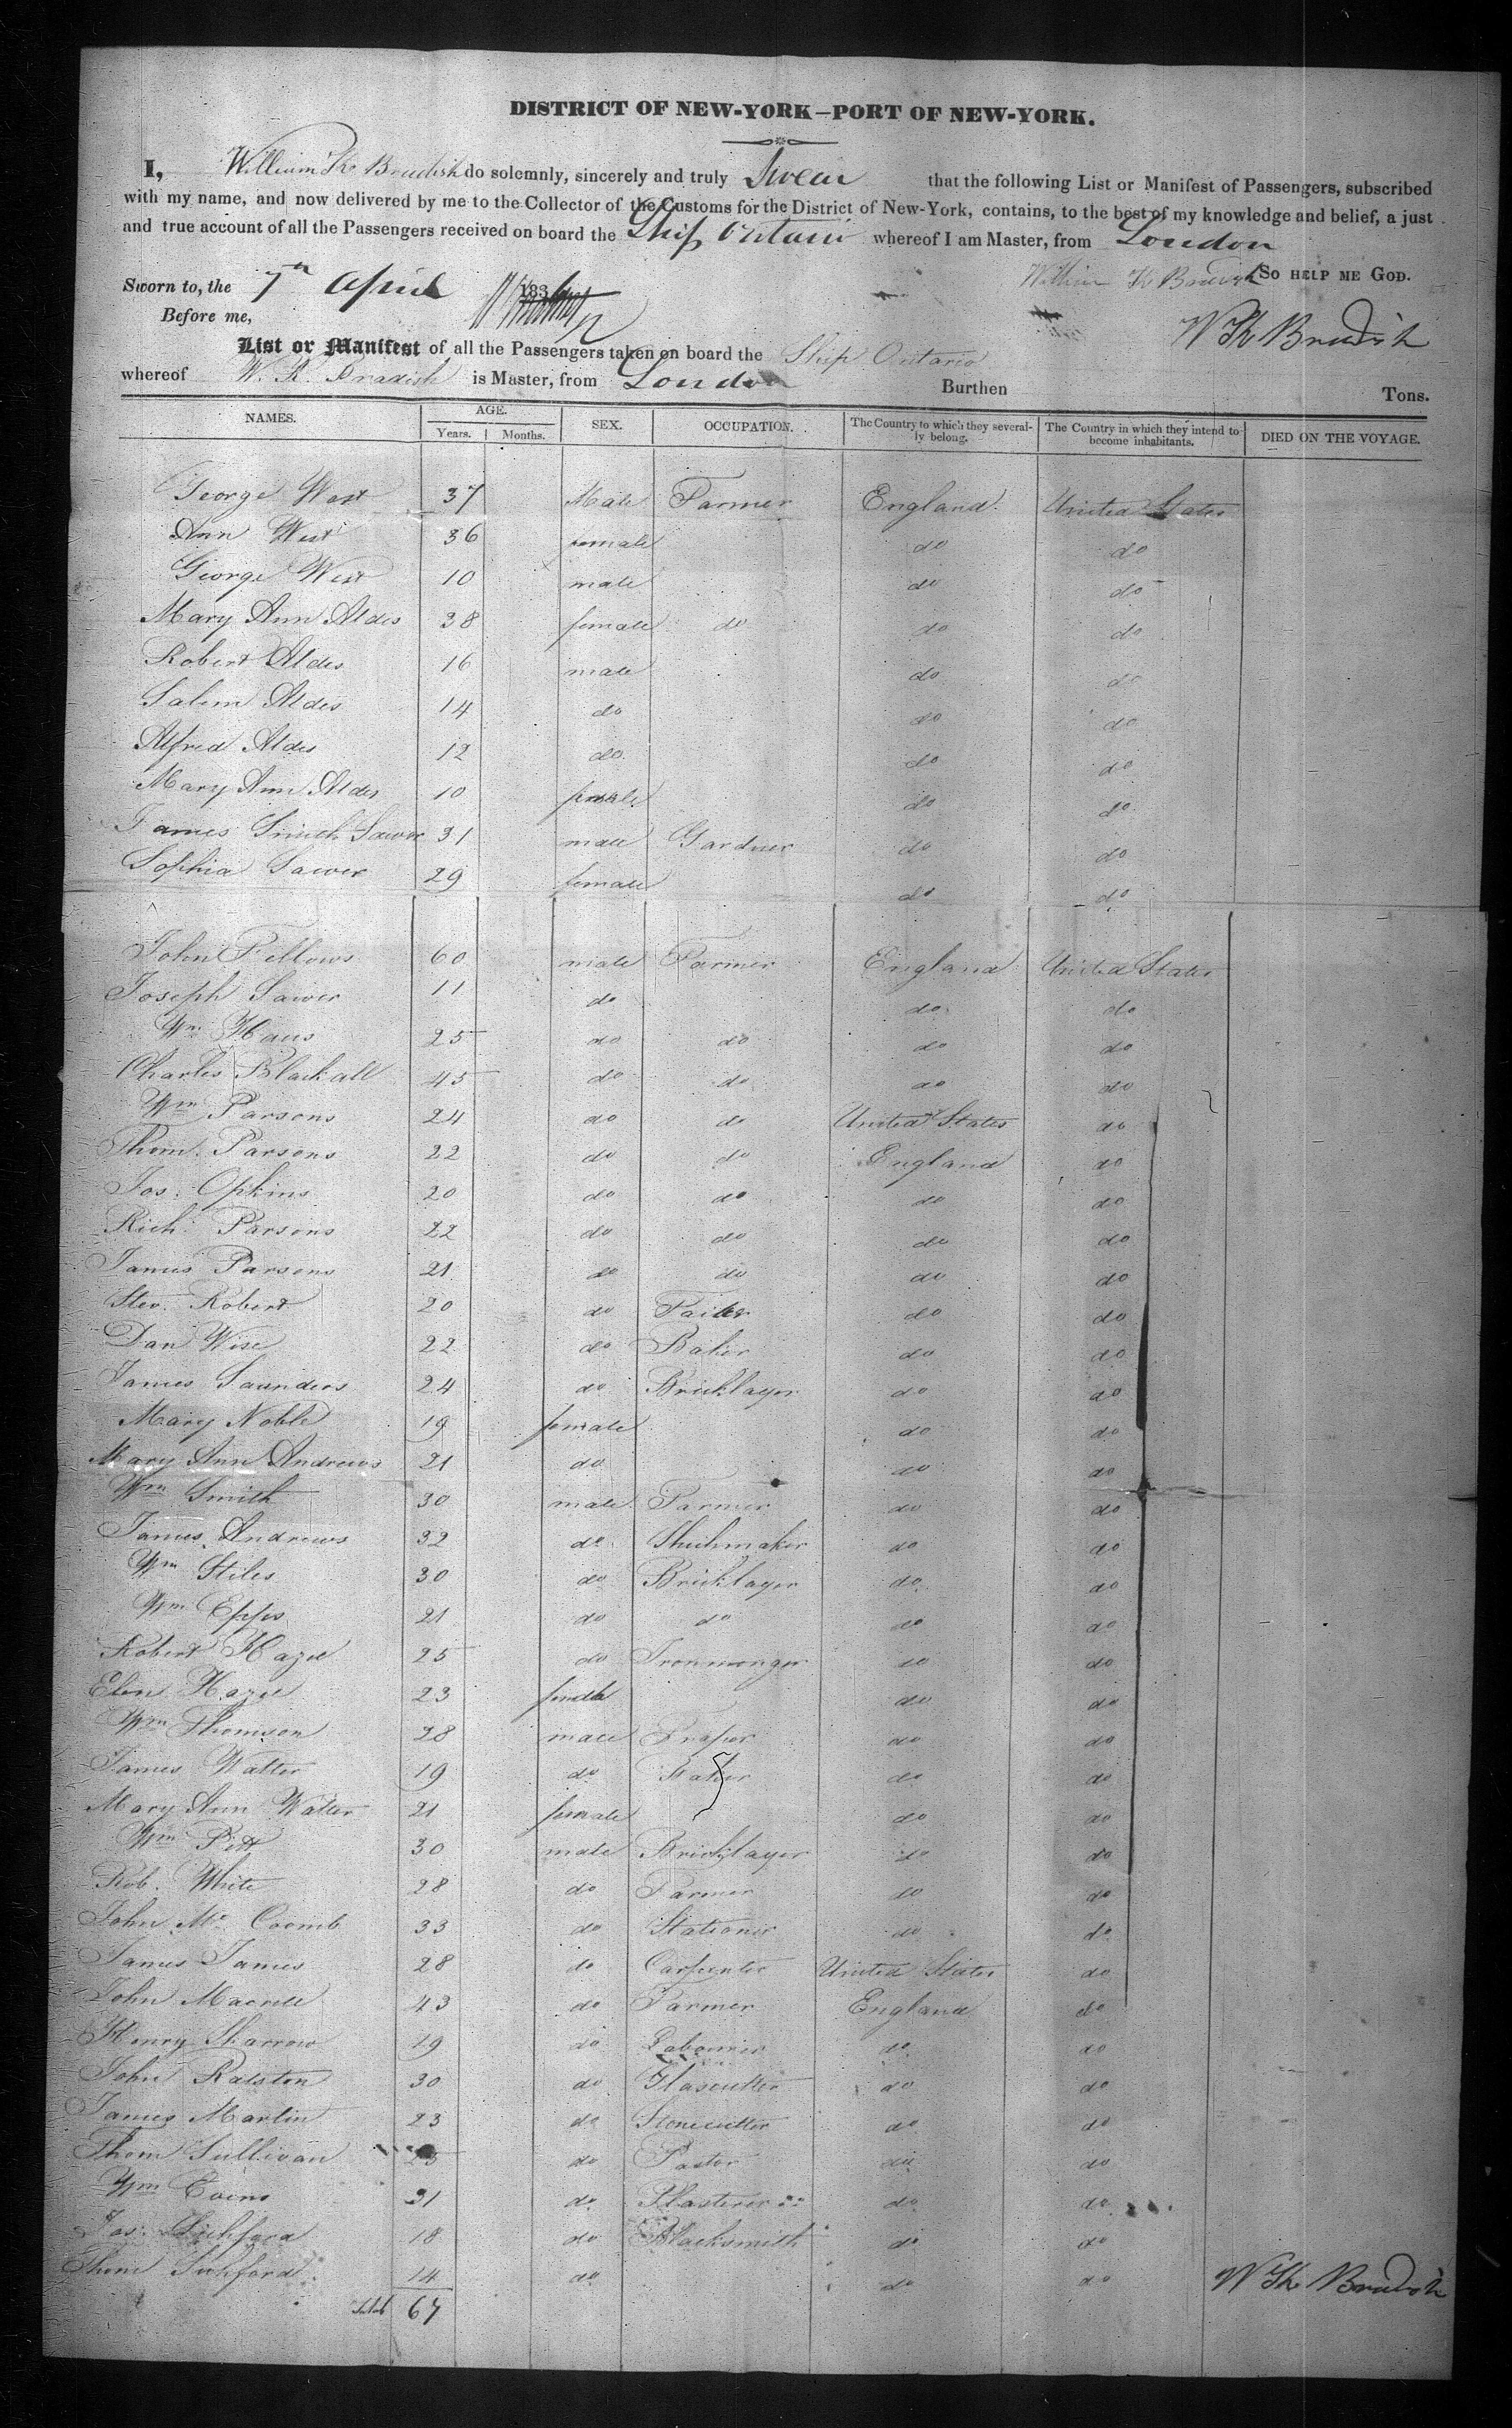 DISTRICT OF NEW-YORK—PORT OF NEW-YORK.
I, William K Bradish do solemnly, sincerely and truly Swear that the following List or Manifest of Passengers, subscribed
with my name, and now delivered by me to the Collector of the Customs for the District of New-York, contains, to the best of my knowledge and belief, a just
and true account of all the Passengers received on board the Ship Ontario whereof I am Master, from London
Sworn to, the 7th April 183 William K Bradish SO HELP ME GOD.
Before me, W K Bradish
List or Manifest of all the Passengers taken on board the Ship Ontario
whereof W. K. Bradish is Master, from London Burthen Tons.
NAMES. AGE. Years. Months. SEX. OCCUPATION. The Country to which they severally belong. The Country in which they intend to become inhabitants. DIED ON THE VOYAGE.
George West 37 Male Farmer England. United States
Ann West 36 female do do
George West 10 male do do
Mary Ann Aldis 38 female do do do
Robert Aldis 16 male do do
Salem Aldis 14 do do do
Alfred Aldis 12 do do do
Mary Ann Aldis 10 female do do
James Smith Sawer 31 male Gardner do do
Sophia Sawer 29 female do do
John Fellows 60 male Farmer England United States
Joseph Sawer 11 do do do
Wm Haus 25 do do do do
Charles Blackall 45 do do do do
Wm Parsons 24 do do United States do
Thom. Parsons 22 do do England do
Jos. Opkins 20 do do do do
Rich. Parsons 22 do do do do
James Parsons 21 do do do do
Stev. Robert 20 do do do
Dan Wise 22 do Baker do do
James Saunders 24 do Bricklayer do do
Mary Noble 19 female do do
Mary Ann Andrews 21 do do do
Wm Smith 30 male Farmer do do
James Andrews 32 do Shuhmaker do do
Wm Stiles 30 do Bricklayer do do
Wm Epps 21 do do do do
Robert Hazel 25 do Ironmonger do do
Elen Hazel 23 female do do
Wm Thomson 28 male Draper do do
James Walter 19 do do do
Mary Ann Walter 21 female do do
Wm Pitt 30 male Bricklayer do do
Rob. White 28 do Farmer do do
John Mc Coomb 33 do Stationer do do
James James 28 do Carpenter United States do
John 43 do Farmer England do
Henry Sharrow 19 do Labourer do do
John Ralston 30 do Glascutter do do
James Martin 23 do Stonecutter do do
Thom Sullivan 25 do do do
Wm 31 do Plasterer do do
Jos. 18 do Blacksmith do do
Thom 14 do do do W K Bradish
Total 67